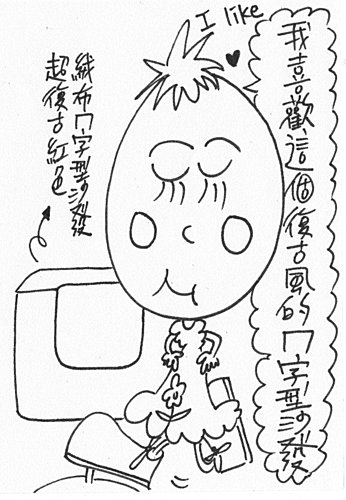 I like
我喜歡這個復古風的ㄇ字型沙發
絨布ㄇ字型沙發
超復古紅色